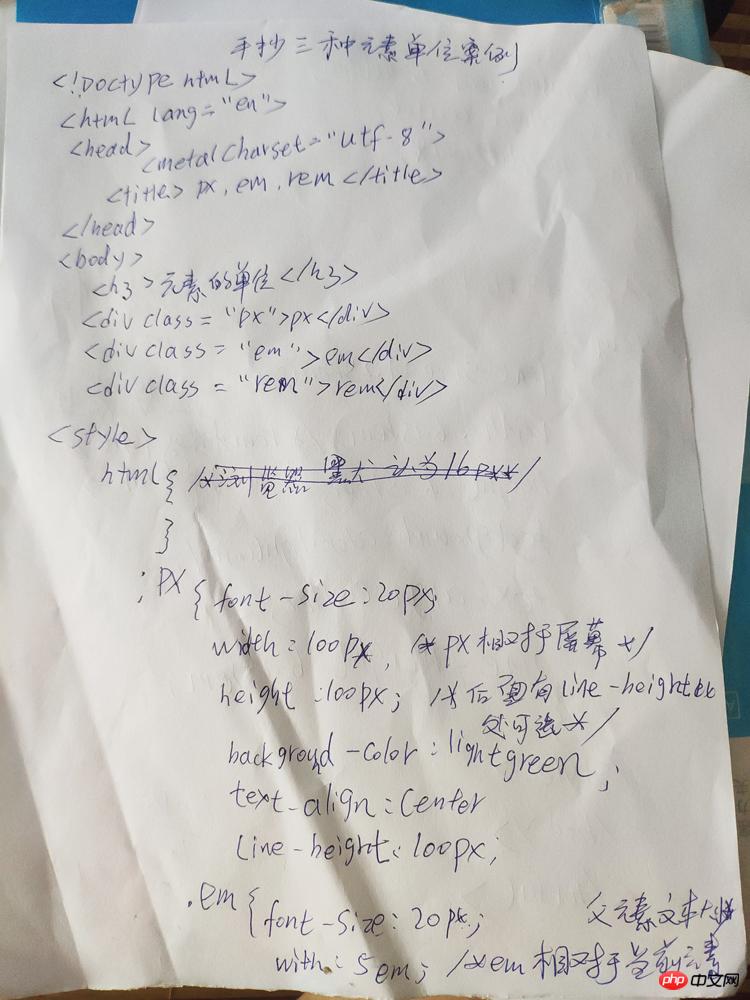 手抄三种元素单位案例
<!Doctype html>
<html lang="en">
<head>
<metal Charset="utf-8">
<title> px, em, rem </title>
</head>
<body>
<h3>元素的单位</h3>
<div class="px">px</div>
<div class="em">em</div>
<div class="rem">rem</div>
<style>
html{ /*浏览器默认为16px*/
}
;px{ font-size:20px;
width:100px, /*px相对于屏幕*/
height:100px; /*后面有line-height
处可省*/
background-color:lightgreen;
text-align:center
line-height:100px;
.em{ font-size:20px; 父元素文本大小
with:5em; /*em相对于当前元素
php中文网